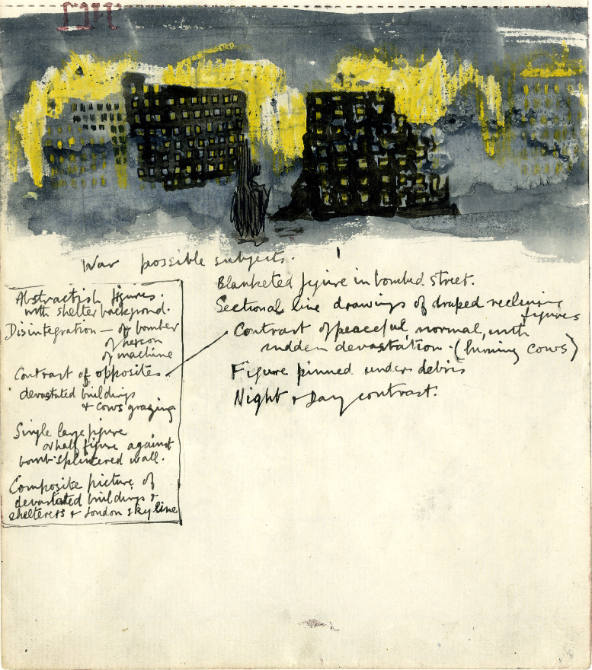 War possible subjects.
Abstractish figures
with shelter background.
Disintegration — of bomber
of
of machine
Contrast of opposites
devastated buildings
& cows grazing
Single large figure
or half figure against
bomb-splintered wall.
Composite picture of
devastated buildings &
shelterers & London skyline
Blanketed figure in bombed street.
Sectional line drawings of draped reclining
figures
Contrast of peaceful normal, with
sudden devastation. (burning cows)
Figure pinned under debris
Night & Day contrast.